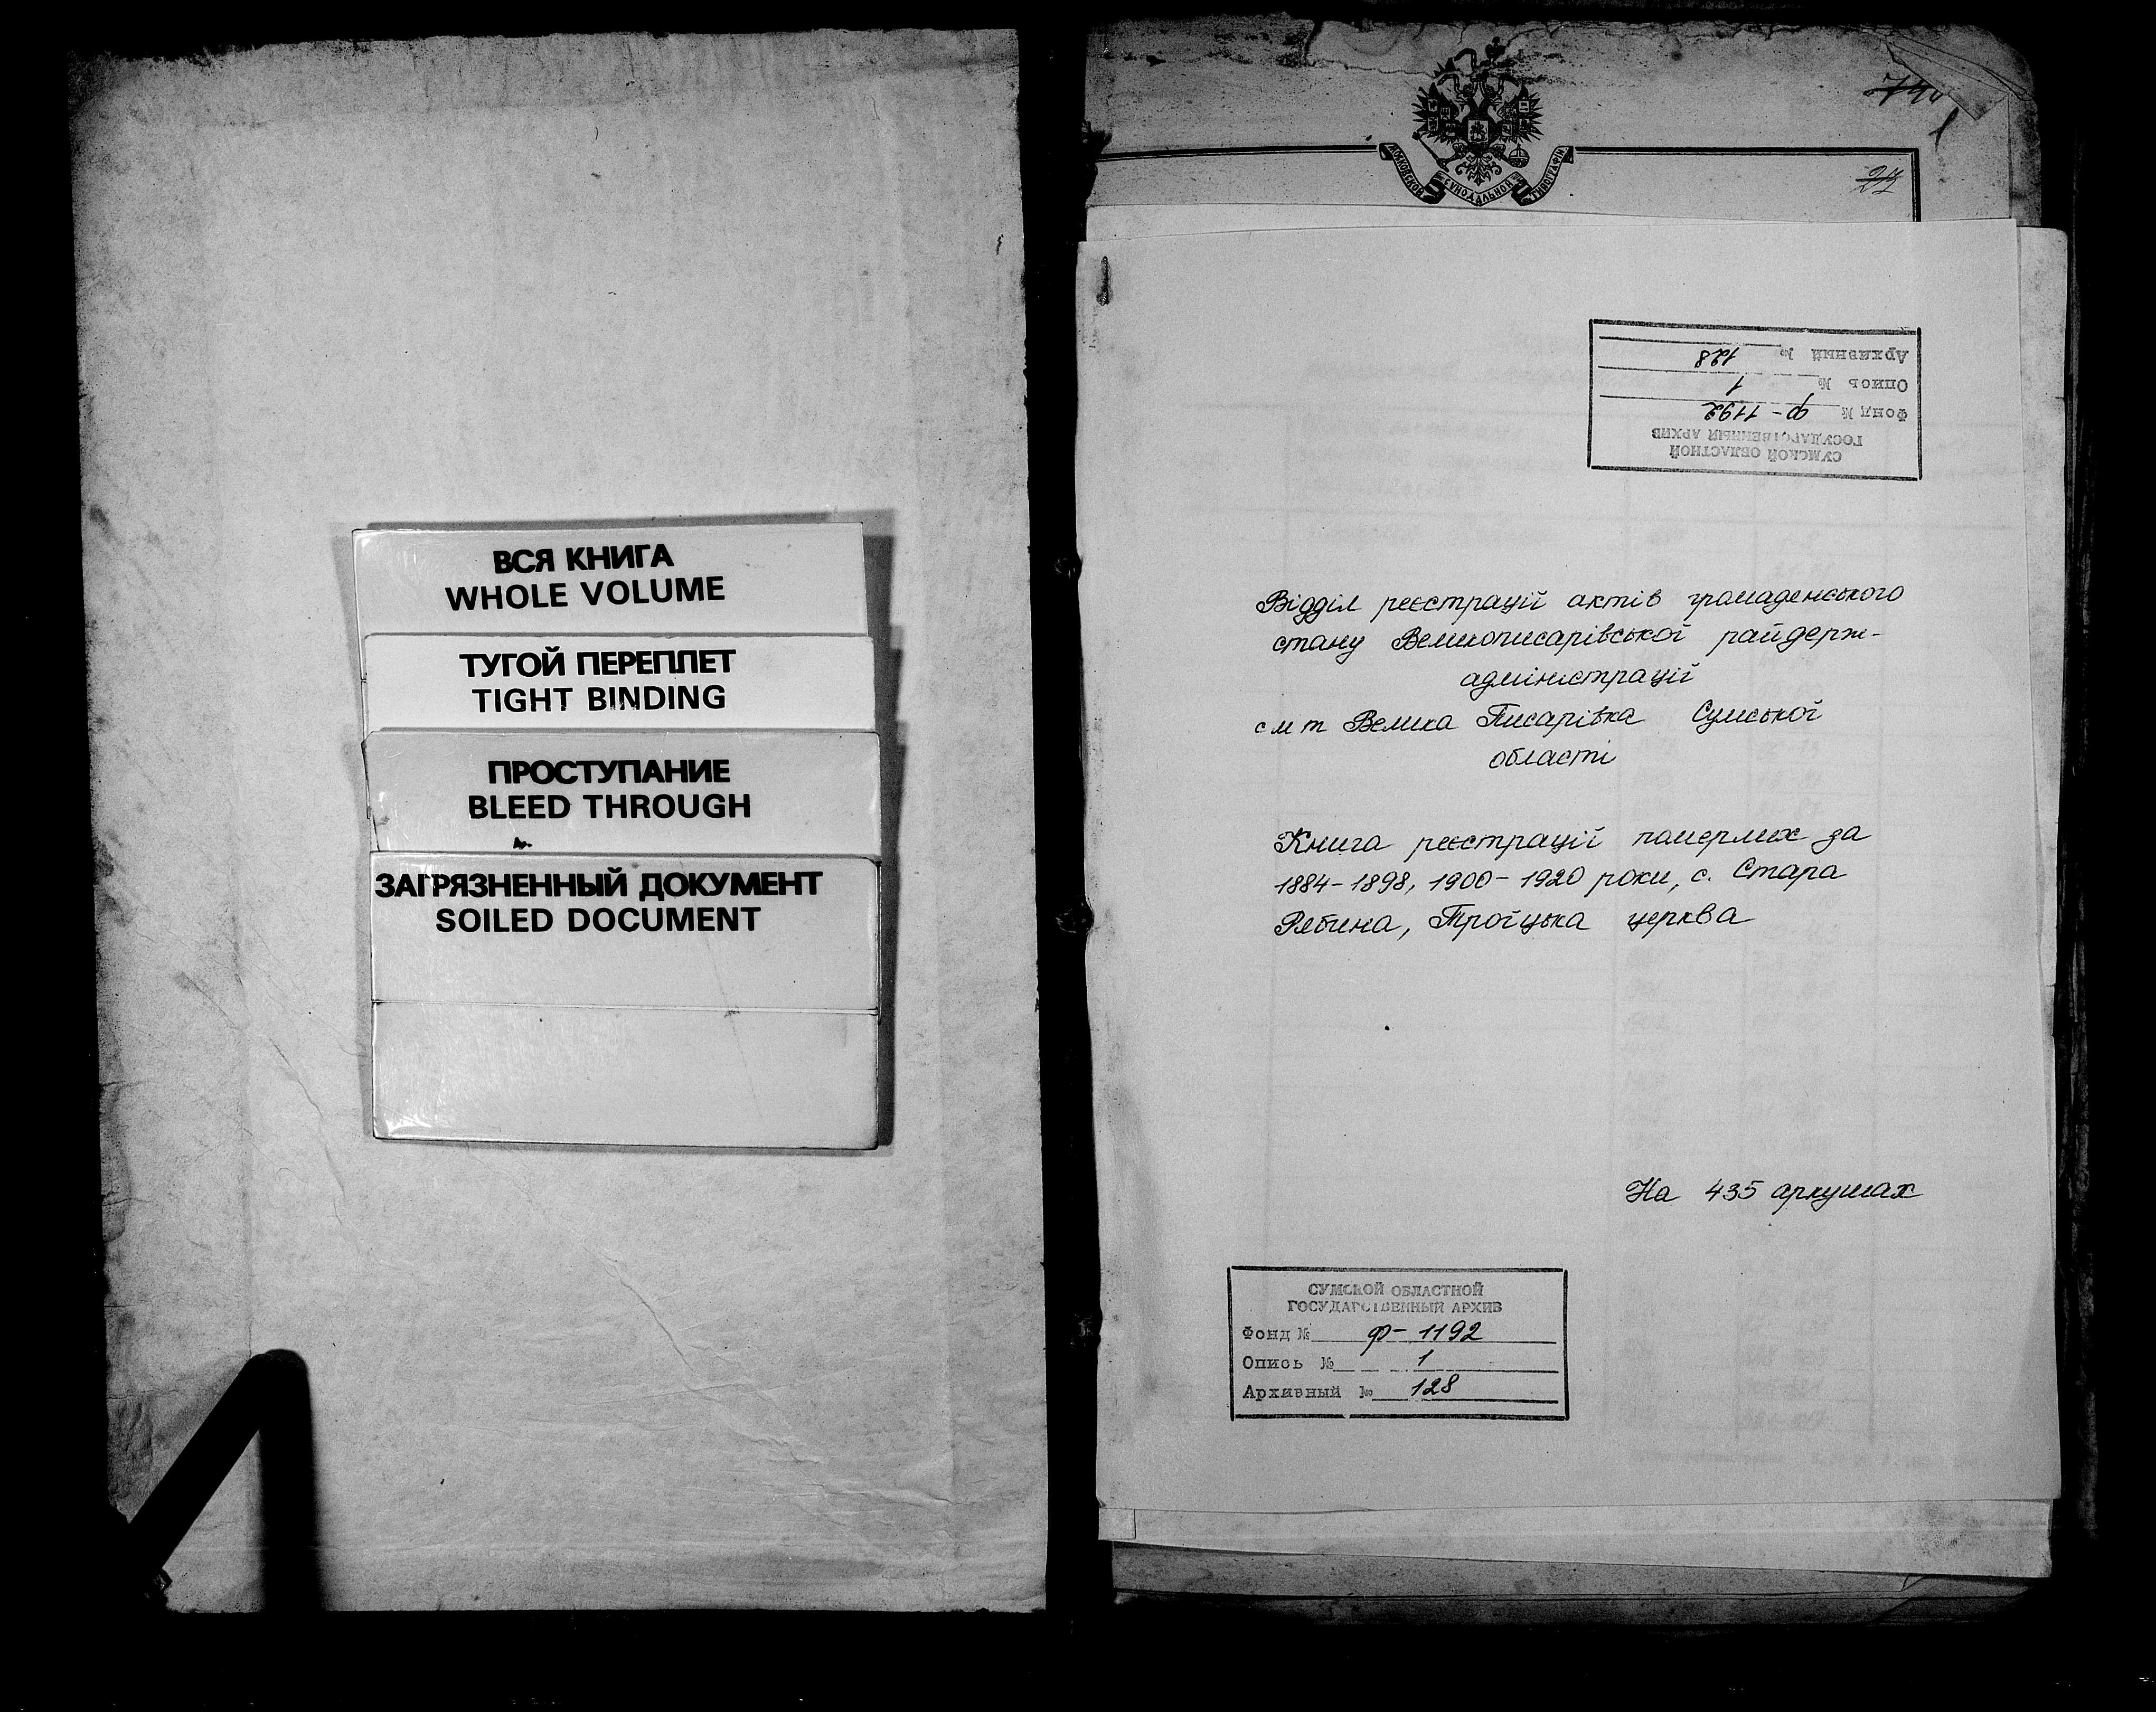 ВСЯ КНИГА
WHOLE VOLUME
ТУГОЙ ПЕРЕПЛЕТ
TIGHT BINDING
ПРОСТУПАНИЕ
BLEED THROUGH
ЗАГРЯЗНЕННЫЙ ДОКУМЕНТ
SOILED DOCUMENT
МОСКОВСКОЙ СУНОДАЛЬНОЙ ТИПОГРАФІИ.
1
27
СУМСКОЙ ОБЛАСТНОЙ
ГОСУДАРСТВЕННЫЙ АРХИВ
Фонд № ф-1192
Опись № 1
Архивный № 128
Відділ реєстрації актів громаденського
стану Великописарівської райдерж-
адміністрації
смт Велика Писарівка Сумської
області
Книга реєстрації померлих за
1884-1898, 1900-1920 роки, с. Стара
Рябина, Троїцька церква
На 435 аркушах
СУМСКОЙ ОБЛАСТНОЙ
ГОСУДАРСТВЕННЫЙ АРХИВ
Фонд № ф-1192
Опись № 1
Архивный № 128